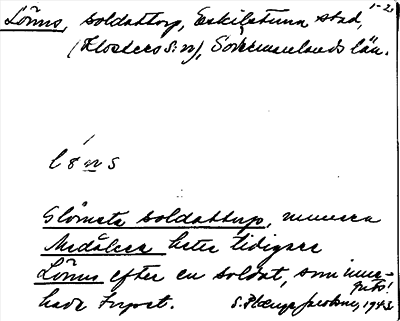 1-2
Lönns, soldattorp, Eskilstuna stad,
(Klosters s:n), Södermanlands län.
lö́ns
Glömsta soldattorp, numera
Medåkra heter tidigare
Lönns efter en soldat, som inne-
hade torpet.
1943